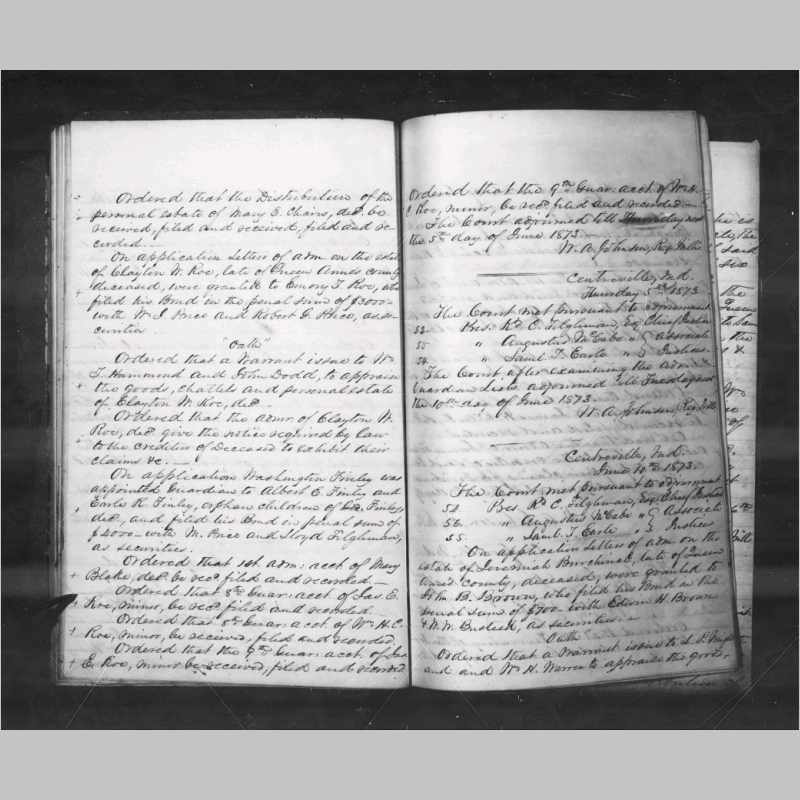 Ordered that the Distribution of the
personal estate of Mary E. Chairs, decd. be
received, filed and received, filed and re-
corded.—
On application letters of adm. on the estate
of Clayton W. Roe, late of Queen Anne's county
deceased, were granted to Emory T. Roe, who
filed his Bond in the penal sum of $3000—
with W. J. Price and Robert G. Price, as se-
curities
"Oath"
Ordered that a warrant issue to Wm.
T. Hammond and John Dodd, to appraise
the goods, chattels and personal estate
of Clayton W. Roe, decd.—
Ordered that the admr. of Clayton W.
Roe, decd. give the notice required by law
to the creditors of Deceased to exhibit their
claims &c.—
On application Washington Finley was
appointed Guardian to Albert E. Finley and
Earle K. Finley, orphan children of Finley
decd, and filed his Bond in penal sum of
$2000— with M. Price and Lloyd Tilghman,
as securities.
Ordered that 1st. adm: acct. of Mary
Blake, decd. be recd. filed and recorded—
Ordered that 8th Guar: acct. of Jas. E.
Roe, minor, be recd. filed and recorded.
Ordered that 8th Guar: acct. of Wm. H. C.
Roe, minor, be received, filed and recorded.
Ordered that the 9th Guar: acct. of Jas
E. Roe, minor be received, filed and recorded
Ordered that the 9th Guar: acct. of Wm. H.
C. Roe, minor, be recd. filed and recorded—
The Court adjourned till Thursday next
the 5th day of June 1873.
W. A. Johnson, Reg. Wills
Centreville, Md.
Thursday 5th 1873
The Court met pursuant to adjournment
53. Pres. Rd. C. Tilghman, Esq Chief Justice
55 " Augustus McCabe " Associate
54. " Saml. T. Earle " Justices
The Court after examining the adm. &
Guardian Lists adjourned till Tuesday next
the 10th day of June 1873.
W. A. Johnson, Reg. Wills
Centreville, Md.
June 10th 1873.
The Court met pursuant to adjournment
54 Pres. Rd. C. Tilghman, Esq Chief Justice
56 " Augustus McCabe " Associate
55 " Saml. T. Earle " Justices
On application letters of adm. on the
estate of Jeremiah Burchinal, late of Queen
Anne's county, deceased, were granted to
John B. Brown, who filed his Bond in the
penal sum of $700 with Edwin H. Brown
& W. W. Busteed, as securities.—
Oath
Ordered that a Warrant issue to
and and Wm. H. Warren to appraise the goods,